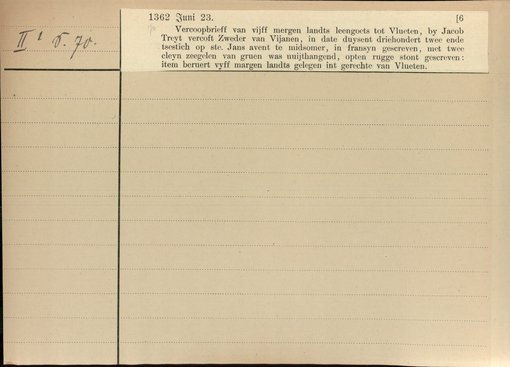 1362 Juni 23. [6
II¹ 5. 70.
Vercoopbrieff van vijff mergen landts leengoets tot Vlueten, by Jacob
Treyt vercoft Zweder van Vijanen, in date duysent driehondert twee ende
tsestich op ste. Jans avent te midsomer, in fransyn gescreven, met twee
cleyn zeegelen van gruen was nuijthangend, opten rugge stont gescreven:
item beruert vyff margen landts gelegen int gerechte van Vlueten.